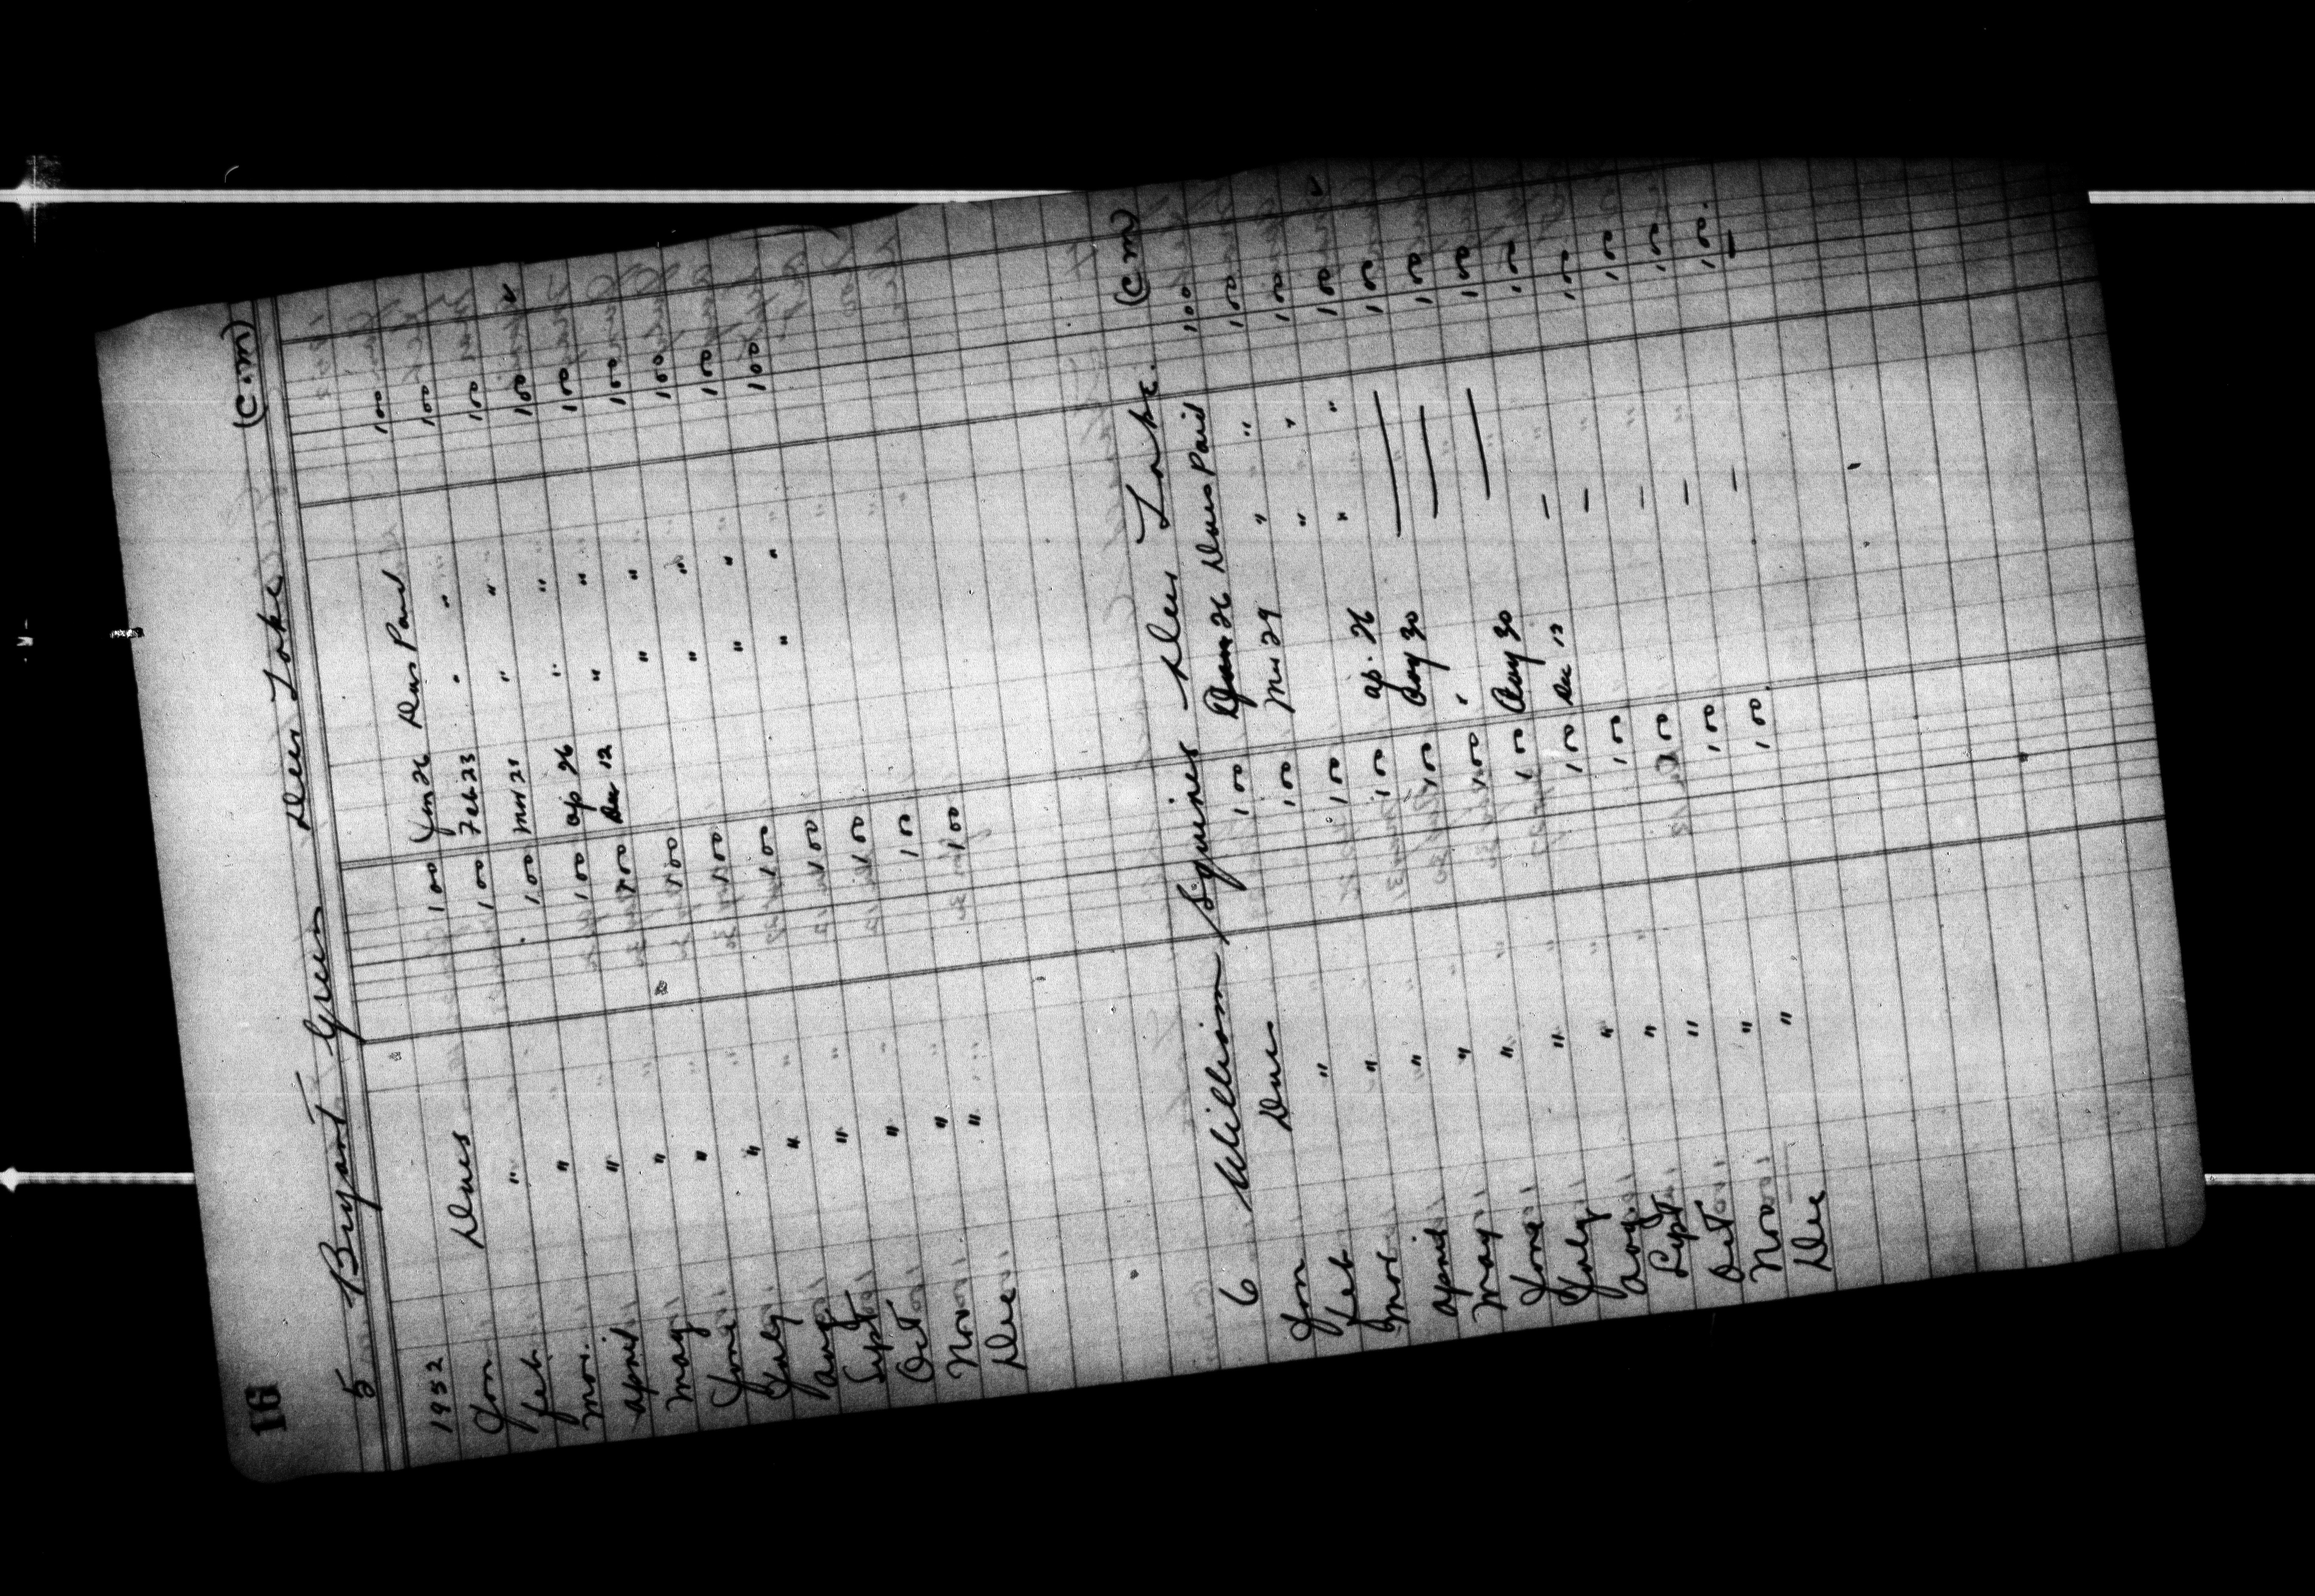 16
(C.M)
5 Bryant Green Deer Lake
1952
Jan Dues 100 Jan 26 Dues Paid 100
Feb. " 100 Feb 23 " " 100
Mar. " 100 Mar 21 " " 100
April " 100 ap 26 " " 100 ✓
May " 100 Dec 12 " " 100
June " 100 " " 100
July " 100 " " 100
Aug " 100 " " 100
Sept " 100 " " 100
Oct " 100
Nov " 100
Dec " 100
6 William Squires Deer Lake. (C M)
Jan Dues 100 Jan 26 Dues Paid 100
Feb " 100 Mar 29 " " 100
Mar " 100 " " 100
April " 100 ap. 26 " " 100 ✓
May " 100 Aug 30 — 100
June " 100 " — 100
July " 100 Aug 30 — 100
Aug " 100 Dec 12 — 100
Sept " 100 — 100
Oct " 100 — 100
Nov " 100 — 100
Dec " 100. — 100.